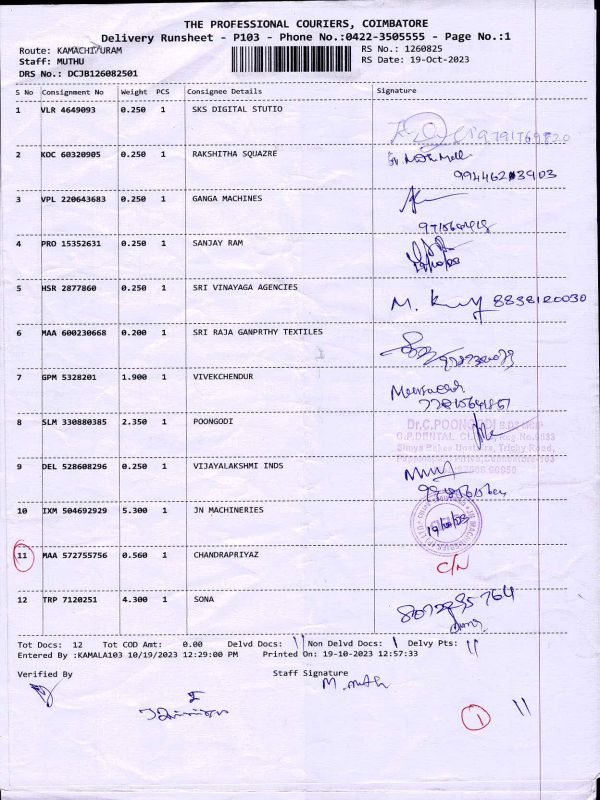 THE PROFESSIONAL COURIERS, COIMBATORE
Delivery Runsheet - P103 - Phone No.:0422-3505555 - Page No.:1
Route: KAMACHIPURAM
RS No.: 1260825
Staff: MUTHU
RS Date: 19-Oct-2023
DRS No.: DCJB126082501
S No Consignment No Weight PCS Consignee Details Signature
1 VLR 4649093 0.250 1 SKS DIGITAL STUTIO
9791769820
2 KOC 60320905 0.250 1 RAKSHITHA SQUAZRE
3 VPL 220643683 0.250 1 GANGA MACHINES
4 PRO 15352631 0.250 1 SANJAY RAM
19/10/23
5 HSR 2877860 0.250 1 SRI VINAYAGA AGENCIES
M. 8838120030
6 MAA 600230668 0.200 1 SRI RAJA GANPRTHY TEXTILES
7 GPM 5328201 1.900 1 VIVEKCHENDUR
8 SLM 330880385 2.350 1 POONGODI
Dr.C.POONGODI B.D.S
DENTAL Reg.No.
Trichy Road,
9 DEL 528608296 0.250 1 VIJAYALAKSHMI INDS
10 IXM 504692929 5.300 1 JN MACHINERIES
11 MAA 572755756 0.560 1 CHANDRAPRIYAZ
C/N
12 TRP 7120251 4.300 1 SONA
Tot Docs: 12 Tot COD Amt: 0.00 Delvd Docs: 11 Non Delvd Docs: 1 Delvy Pts: 11
Entered By :KAMALA103 10/19/2023 12:29:00 PM Printed On: 19-10-2023 12:57:33
Verified By Staff Signature
M. muth
1 11